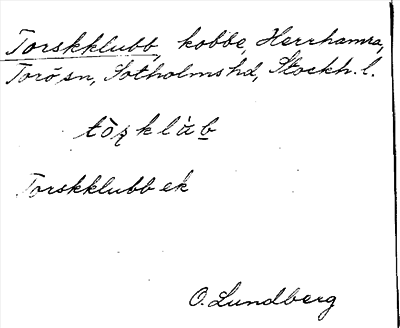 Torskklubb, kobbe, Herrhamra,
Torö sn, Sotholms hd, Stockh. l.
tò̱ʂklàb
Torskklubb ek
O. Lundberg